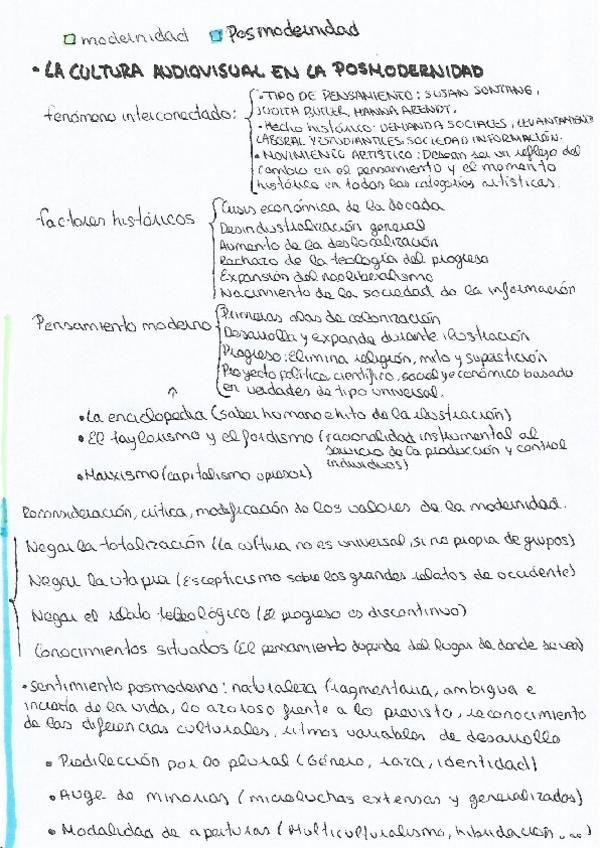 modernidad Posmodernidad
• LA CULTURA AUDIOVISUAL EN LA POSMODERNIDAD
fenómeno interconectado:
• TIPO DE PENSAMIENTO: SUSAN SONTANG,
JUDITH BUTLER, HANNA ARENDT.
• Hecho histórico: DEMANDA SOCIALES, LEVANTAMIENTO
LABORAL Y ESTUDIANTILES, SOCIEDAD INFORMACIÓN.
• MOVIMIENTO ARTÍSTICO: Desean ser un reflejo del
cambio en el pensamiento y el momento
histórico en todas las categorías artísticas.
factores históricos
Crisis económica de la decada
Desindustrialización general
Aumento de la deslocalización
Rechazo de la teología del progreso
Expansión del neoliberalismo
Nacimiento de la sociedad de la información
Pensamiento moderno
Primeras olas de colonización
Desarrolla y expande durante ilustración
Progreso: Elimina religión, mito y superstición
Proyecto político, científico, social y económico basado
en verdades de tipo universal.
↑
• La enciclopedia (saber humano e hito de la ilustración)
• El taylorismo y el fordismo (racionalidad instrumental al
servicio de la producción y control
individuos)
• Marxismo (capitalismo opresor)
Reconsideración, crítica, modificación de los valores de la modernidad.
Negar la totalización (la cultura no es universal, si no propia de grupos)
Negar la utopia (Escepticismo sobre los grandes relatos de occidente)
Negar el relato teleológico (El progreso es discontinuo)
Conocimientos situados (El pensamiento depende del lugar de donde se vea)
• Sentimiento posmoderno: naturaleza fragmentaria, ambigua e
incierta de la vida, lo azaroso frente a lo previsto, reconocimiento
de las diferencias culturales, ritmos variables de desarrollo
• Predilección por lo plural (Género, raza, identidad)
• Auge de minorias (microluchas extensas y generalizadas)
• Modalidad de aperturas (Multiculturalismo, hibridación...)